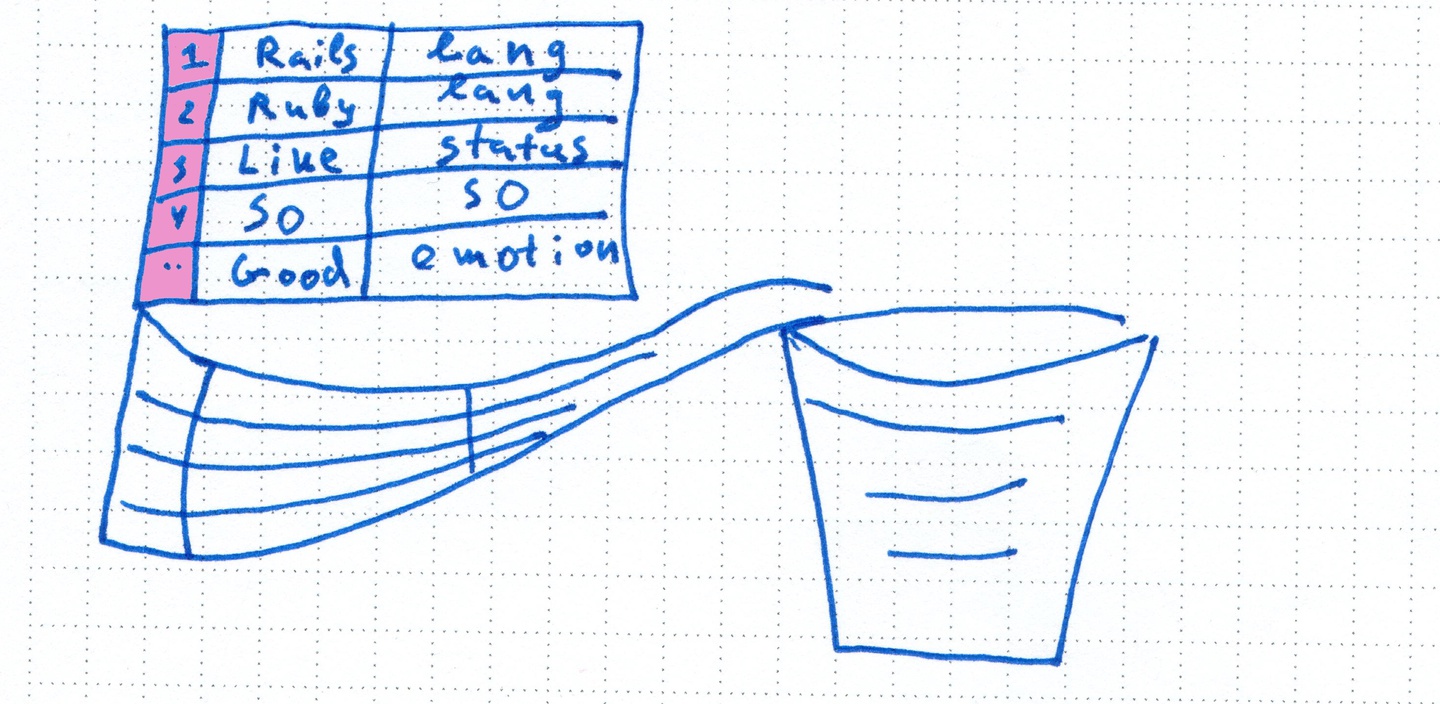 1 Rails lang
2 Ruby lang
3 Like status
4 SO SO
.. Good emotion